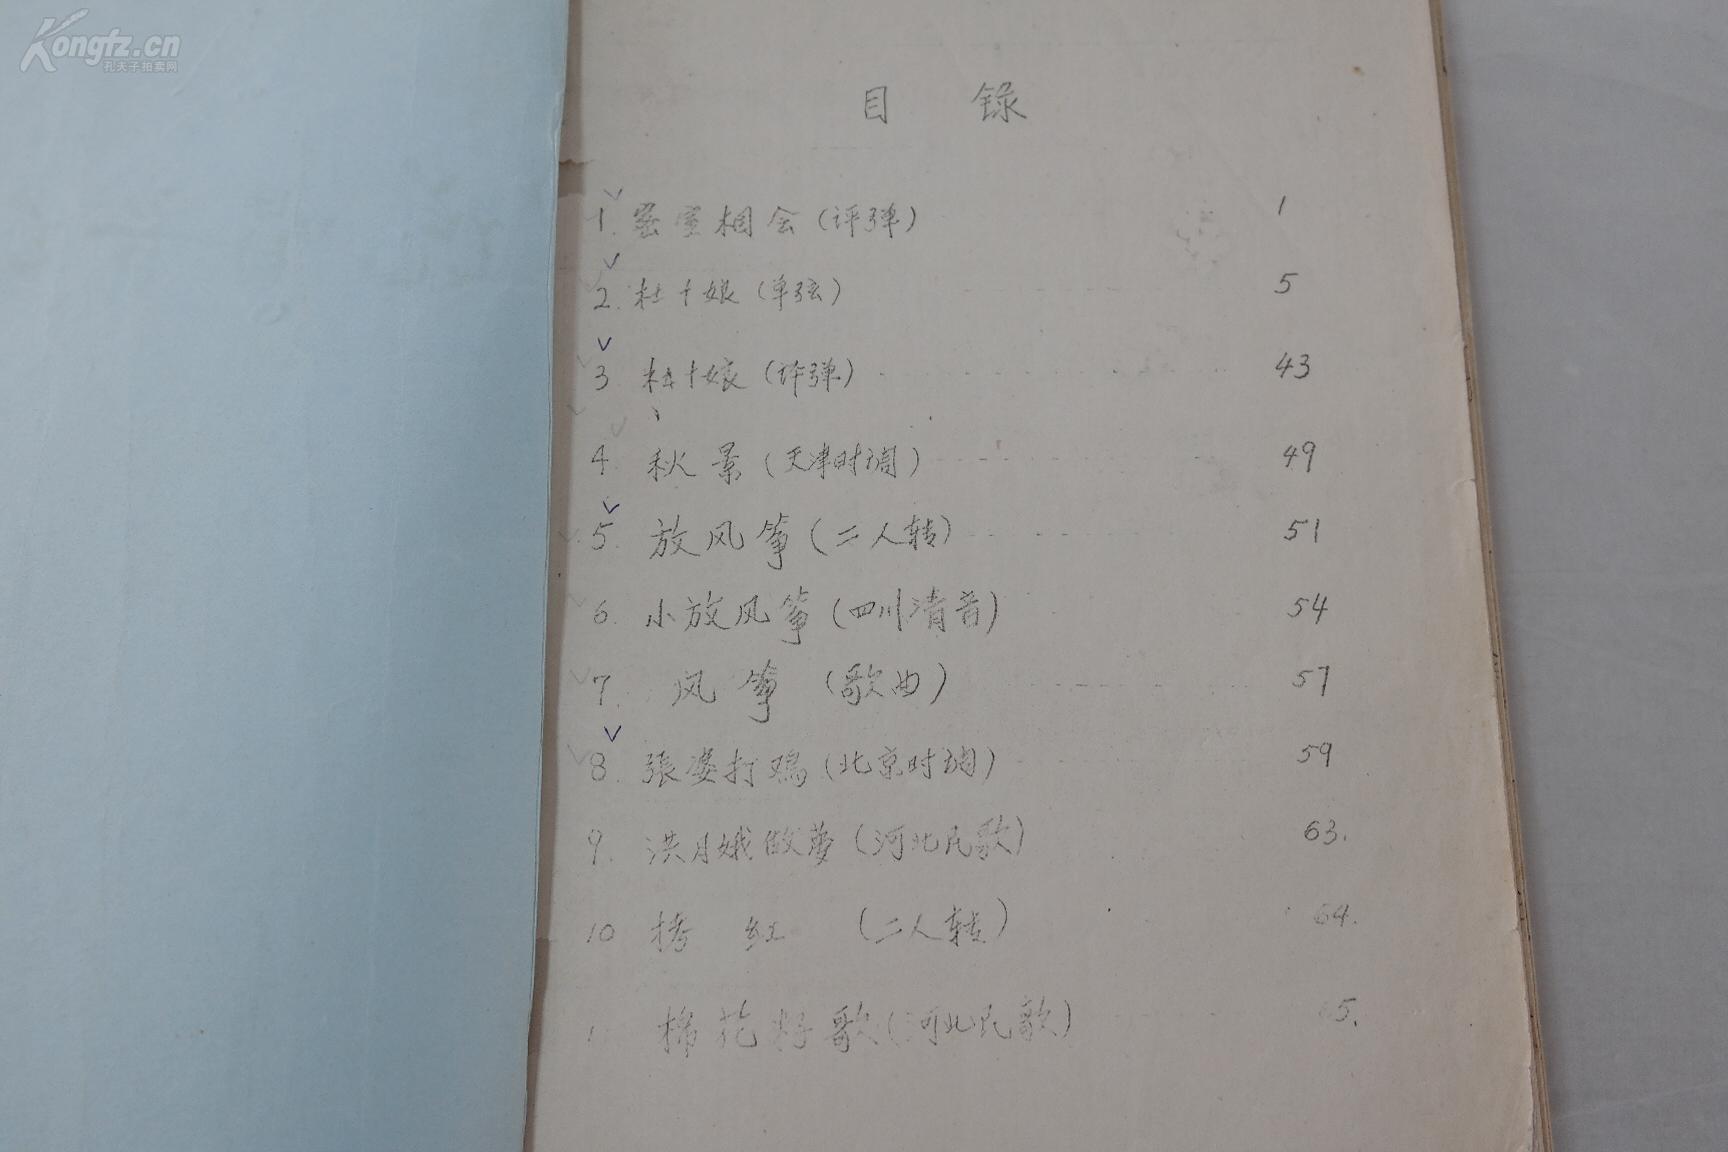 Kongfz.cn
孔夫子拍卖网
目 錄
1. 密室相会（评弹） 1
2. 杜十娘（单弦） 5
3 杜十娘（评弹） 43
4 秋景（天津时调） 49
5. 放风筝（二人转） 51
6. 小放风筝（四川清音） 54
7. 风筝（歌曲） 57
8. 張婆打鸡（北京时调） 59
9. 洪月娥做萝（河北民歌） 63.
10 拷红（二人转） 64.
棉花籽歌（河北民歌） 65.